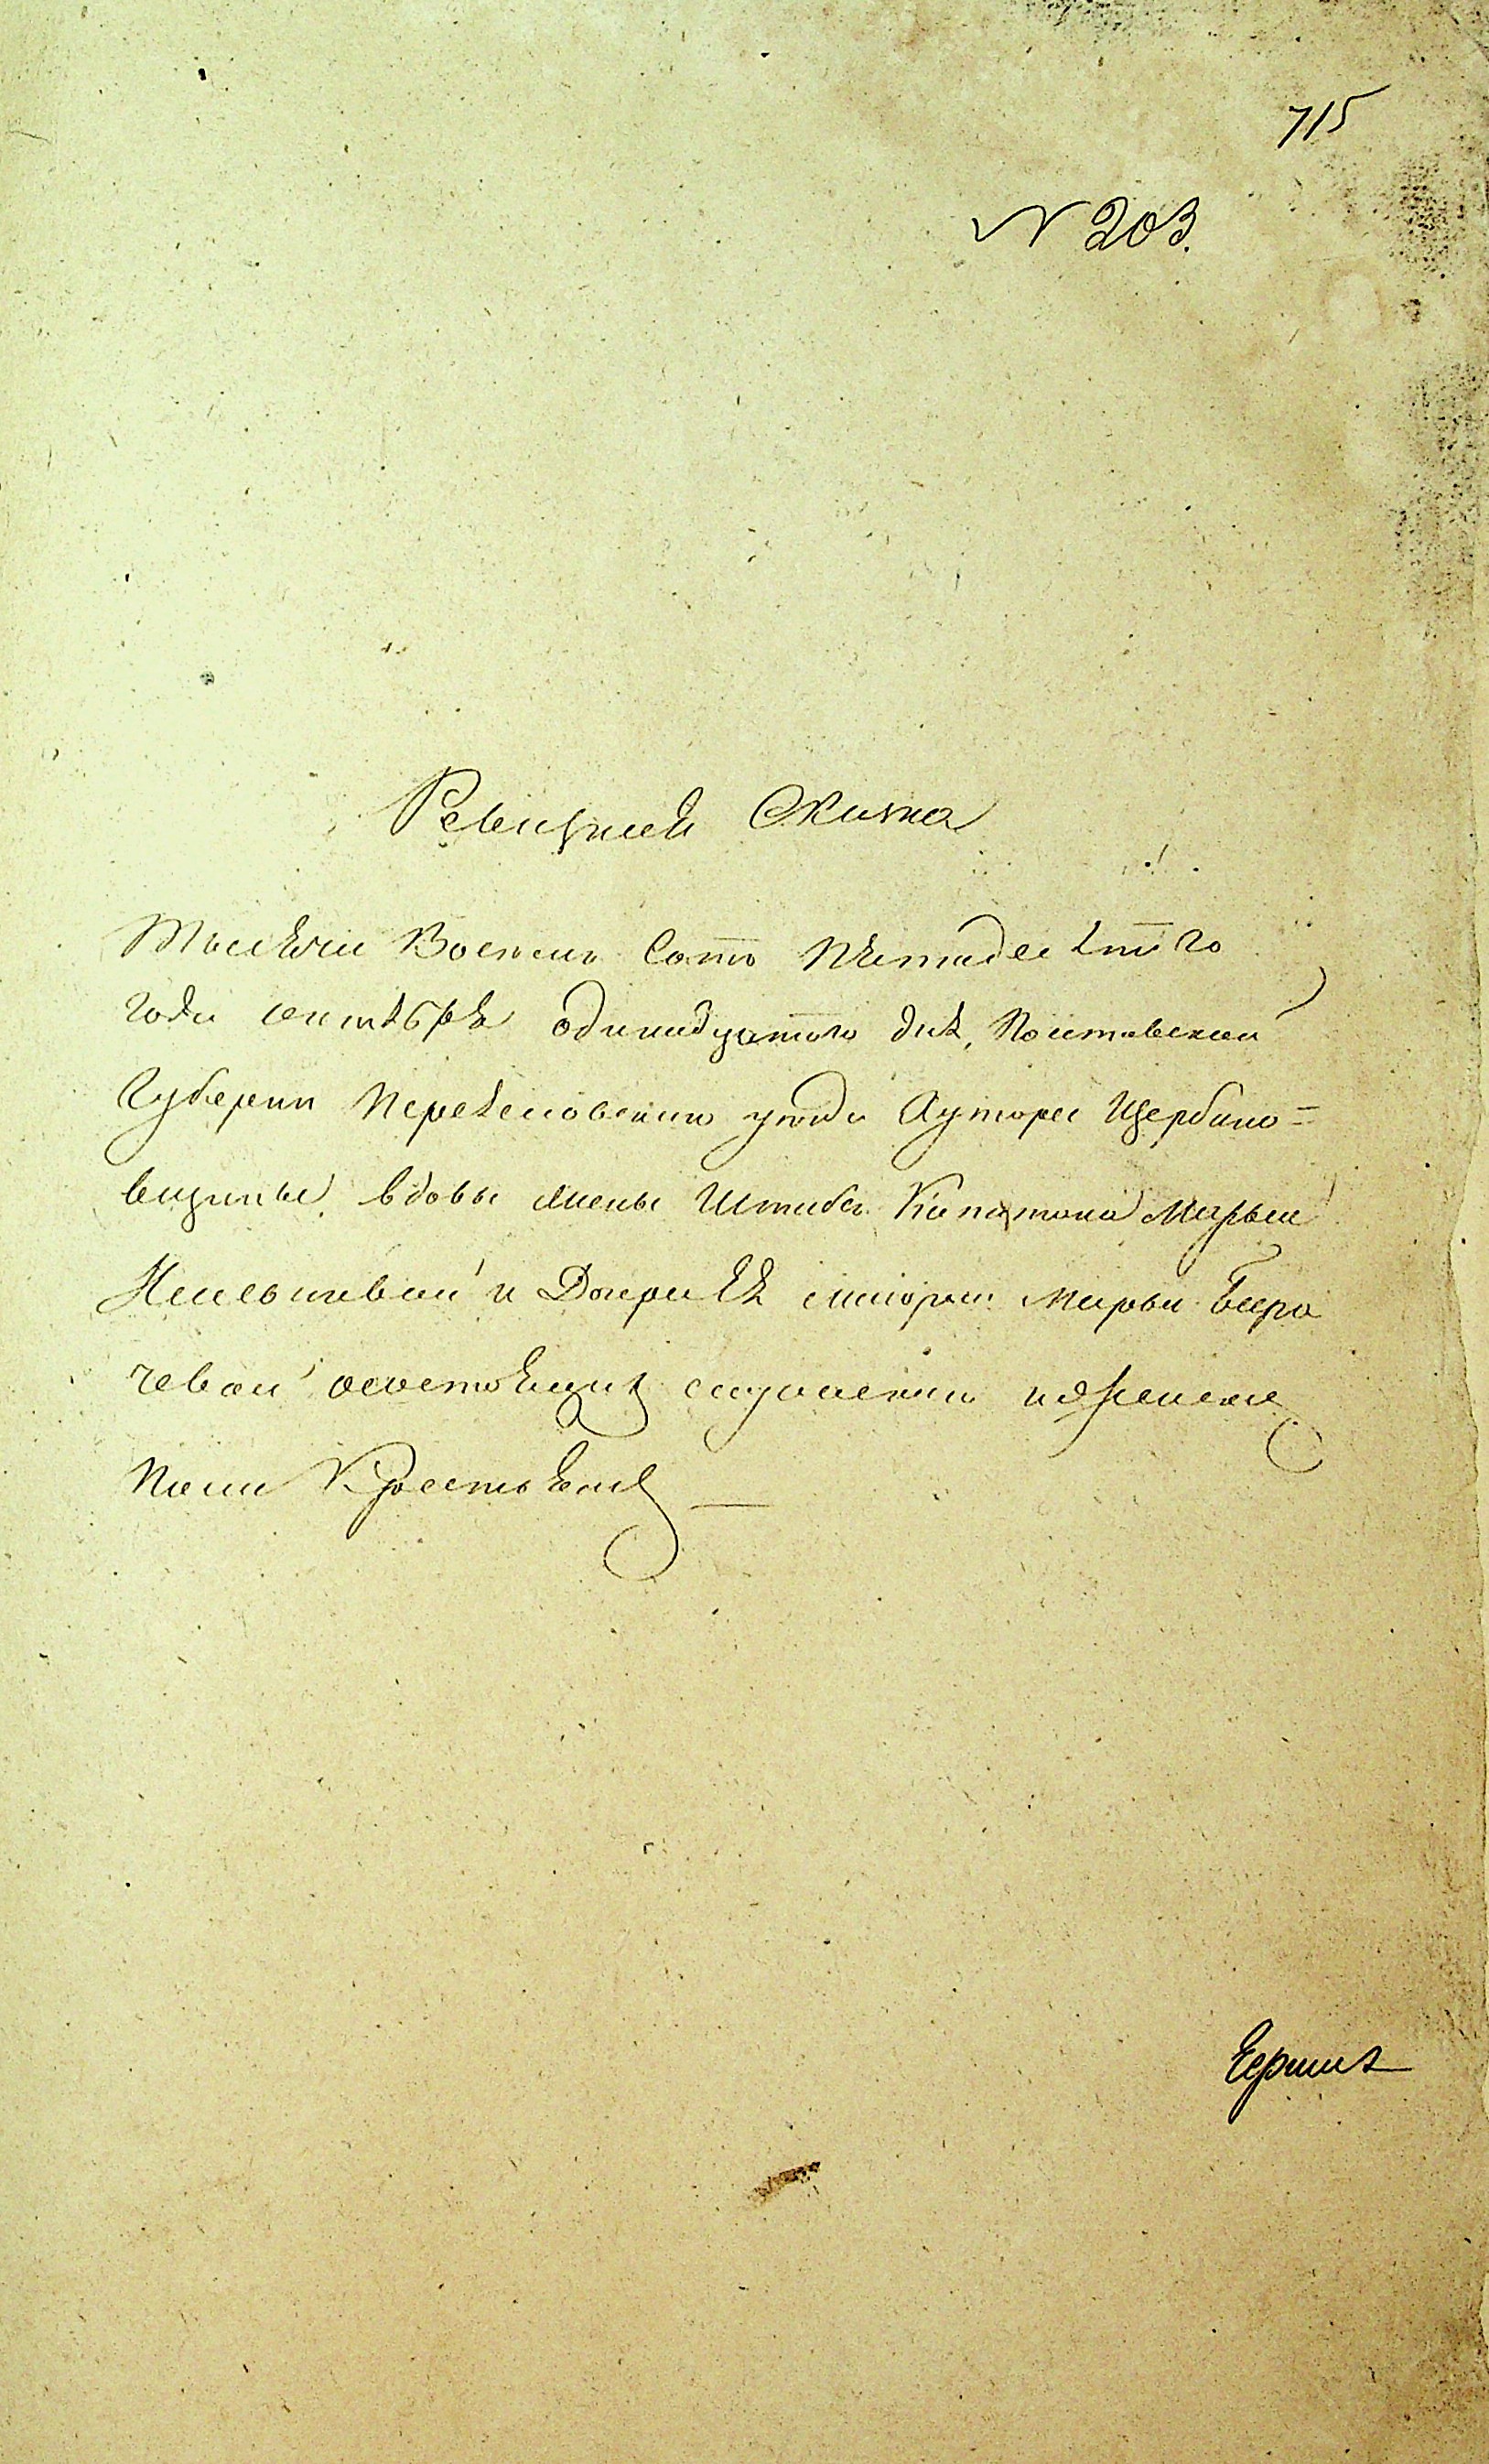 715
N 203.
Ревизская Скаска
Тысяча Восемь Сотъ Пятидесятого
года сентября одинадцатого дня, Полтавской
Губернии Переяславского уезда Хутора Щербино=
вщины вдовы жены Штабсъ Капитана Марьи
и Дочери Ея Марьи
чевой о состоящихъ мужеска и женска
пола Крестьянахъ